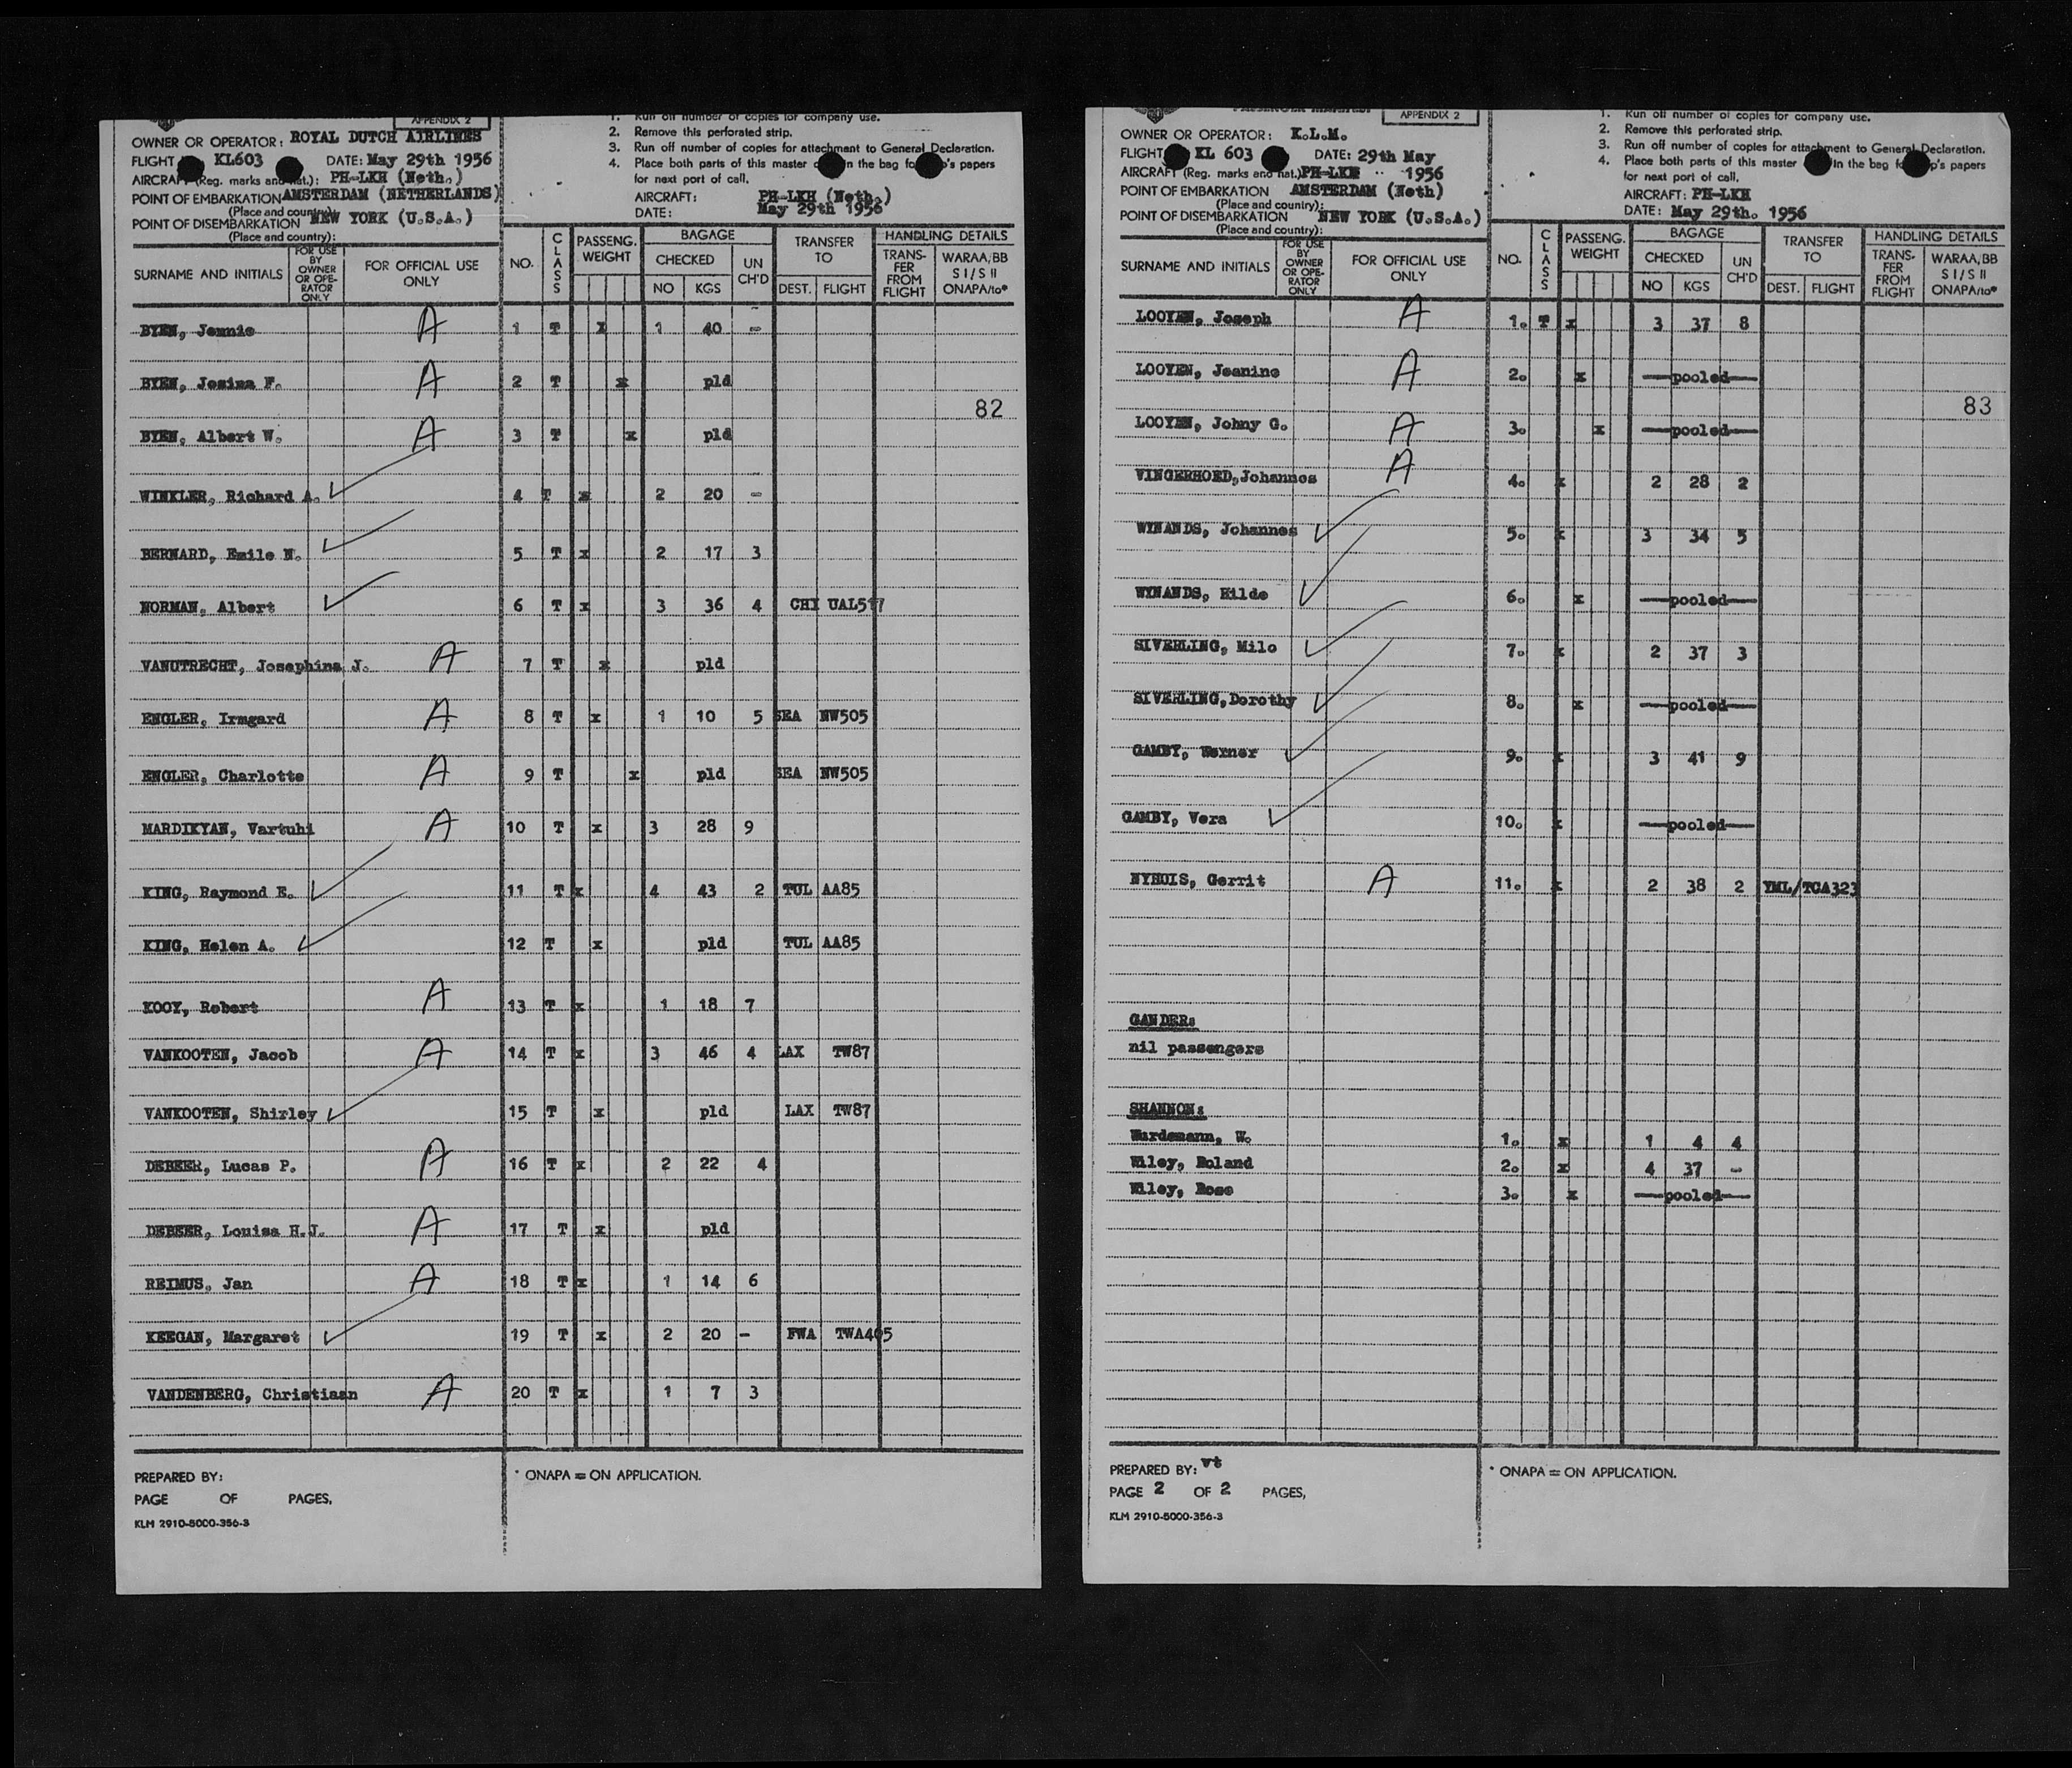 APPENDIX 2
OWNER OR OPERATOR: ROYAL DUTCH AIRLINES
FLIGHT KL603 DATE: May 29th 1956
AIRCRAFT (Reg. marks and nat.): PH-LKH (Neth.)
POINT OF EMBARKATION AMSTERDAM (NETHERLANDS)
(Place and country):
POINT OF DISEMBARKATION NEW YORK (U.S.A.)
(Place and country):
1. Run off number of copies for company use.
2. Remove this perforated strip.
3. Run off number of copies for attachment to General Declaration.
4. Place both parts of this master in the bag for 's papers
for next port of call.
AIRCRAFT: PH-LKH (Neth.)
DATE: May 29th 1956
SURNAME AND INITIALS FOR USE BY OWNER OR OPE-RATOR ONLY FOR OFFICIAL USE ONLY NO. CLASS PASSENG. WEIGHT BAGAGE CHECKED NO KGS UN CH'D TRANSFER TO DEST. FLIGHT HANDLING DETAILS TRANS-FER FROM FLIGHT WARAA, BB S I / S II ONAPA/to*
BYEN, Jennie A 1 T x 1 40 -
BYEN, Josina F. A 2 T x pld
82
BYEN, Albert W. A 3 T x pld
WINKLER, Richard A. 4 T x 2 20 -
BERNARD, Emile N. 5 T x 2 17 3
NORMAN, Albert 6 T x 3 36 4 CHI UAL517
VANUTRECHT, Josephina J. A 7 T x pld
ENGLER, Irmgard A 8 T x 1 10 5 SEA NW505
ENGLER, Charlotte A 9 T x pld SEA NW505
MARDIKYAN, Vartuhi A 10 T x 3 28 9
KING, Raymond E. 11 T x 4 43 2 TUL AA85
KING, Helen A. 12 T x pld TUL AA85
KOOY, Robert A 13 T x 1 18 7
VANKOOTEN, Jacob A 14 T x 3 46 4 LAX TW87
VANKOOTEN, Shirley 15 T x pld LAX TW87
DEBEER, Lucas P. A 16 T x 2 22 4
DEBEER, Louisa H.J. A 17 T x pld
REIMUS, Jan A 18 T x 1 14 6
KEEGAN, Margaret 19 T x 2 20 - FWA TWA405
VANDENBERG, Christiaan A 20 T x 1 7 3
PREPARED BY:
PAGE OF PAGES,
KLM 2910-5000-356-3
* ONAPA = ON APPLICATION.
APPENDIX 2
OWNER OR OPERATOR: K.L.M.
FLIGHT KL 603 DATE: 29th May
AIRCRAFT (Reg. marks and nat.) PH-LKH 1956
POINT OF EMBARKATION AMSTERDAM (Neth)
(Place and country):
POINT OF DISEMBARKATION NEW YORK (U.S.A.)
(Place and country):
1. Run off number of copies for company use.
2. Remove this perforated strip.
3. Run off number of copies for attachment to General Declaration.
4. Place both parts of this master in the bag for 's papers
for next port of call.
AIRCRAFT: PH-LKH
DATE: May 29th. 1956
SURNAME AND INITIALS FOR USE BY OWNER OR OPE-RATOR ONLY FOR OFFICIAL USE ONLY NO. CLASS PASSENG. WEIGHT BAGAGE CHECKED NO KGS UN CH'D TRANSFER TO DEST. FLIGHT HANDLING DETAILS TRANS-FER FROM FLIGHT WARAA, BB S I / S II ONAPA/to*
LOOYEN, Joseph A 1. T x 3 37 8
LOOYEN, Jeanine A 2. x —pooled—
83
LOOYEN, Johny G. A 3. x —pooled—
VINGERHOED,Johannes A 4. x 2 28 2
WYNANDS, Johannes 5. x 3 34 5
WYNANDS, Hilde 6. x —pooled—
SIVERLING, Milo 7. x 2 37 3
SIVERLING,Dorothy 8. x —pooled—
GAMBY, Werner 9. x 3 41 9
GAMBY, Vera 10. x —pooled—
NYHUIS, Gerrit A 11. x 2 38 2 YML/TCA323
GANDER:
nil passengers
SHANNON:
Wurdemann, W. 1. x 1 4 4
Wiley, Roland 2. x 4 37 -
Wiley, Rose 3. x —pooled—
PREPARED BY: vt
PAGE 2 OF 2 PAGES,
KLM 2910-5000-356-3
* ONAPA = ON APPLICATION.